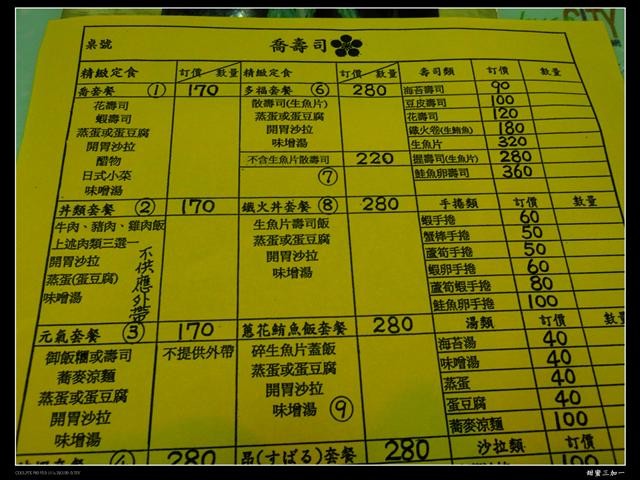 CITY
桌號
喬壽司
精緻定食 訂價 數量 精緻定食 訂價 數量 壽司類 訂價 數量
喬套餐 ① 170
花壽司
蝦壽司
蒸蛋或蛋豆腐
開胃沙拉
醋物
日式小菜
味噌湯
丼類套餐 ② 170
牛肉、豬肉、雞肉飯
上述肉類三選一
開胃沙拉
蒸蛋(蛋豆腐)
味噌湯
不供應外帶
元氣套餐 ③ 170
御飯糰或壽司 不提供外帶
蕎麥涼麵
蒸蛋或蛋豆腐
開胃沙拉
味噌湯
④ 280
多福套餐 ⑥ 280
散壽司(生魚片)
蒸蛋或蛋豆腐
開胃沙拉
味噌湯
不含生魚片散壽司 220
⑦
鐵火丼套餐 ⑧ 280
生魚片壽司飯
蒸蛋或蛋豆腐
開胃沙拉
味增湯
蔥花鮪魚飯套餐 280
碎生魚片蓋飯
蒸蛋或蛋豆腐
開胃沙拉
味增湯 ⑨
昴(すばる)套餐 280
海苔壽司 90
豆皮壽司 100
花壽司 120
鐵火卷(生鮪魚) 180
生魚片 320
握壽司(生魚片) 280
鮭魚卵壽司 360
手捲類 訂價 數量
蝦手捲 60
蟹棒手捲 50
蘆筍手捲 50
蝦卵手捲 60
蘆筍蝦手捲 80
鮭魚卵手捲 100
湯類 訂價 數量
海苔湯 40
味噌湯 40
蒸蛋 40
蛋豆腐 40
蕎麥涼麵 100
沙拉類 訂價
甜蜜三加一